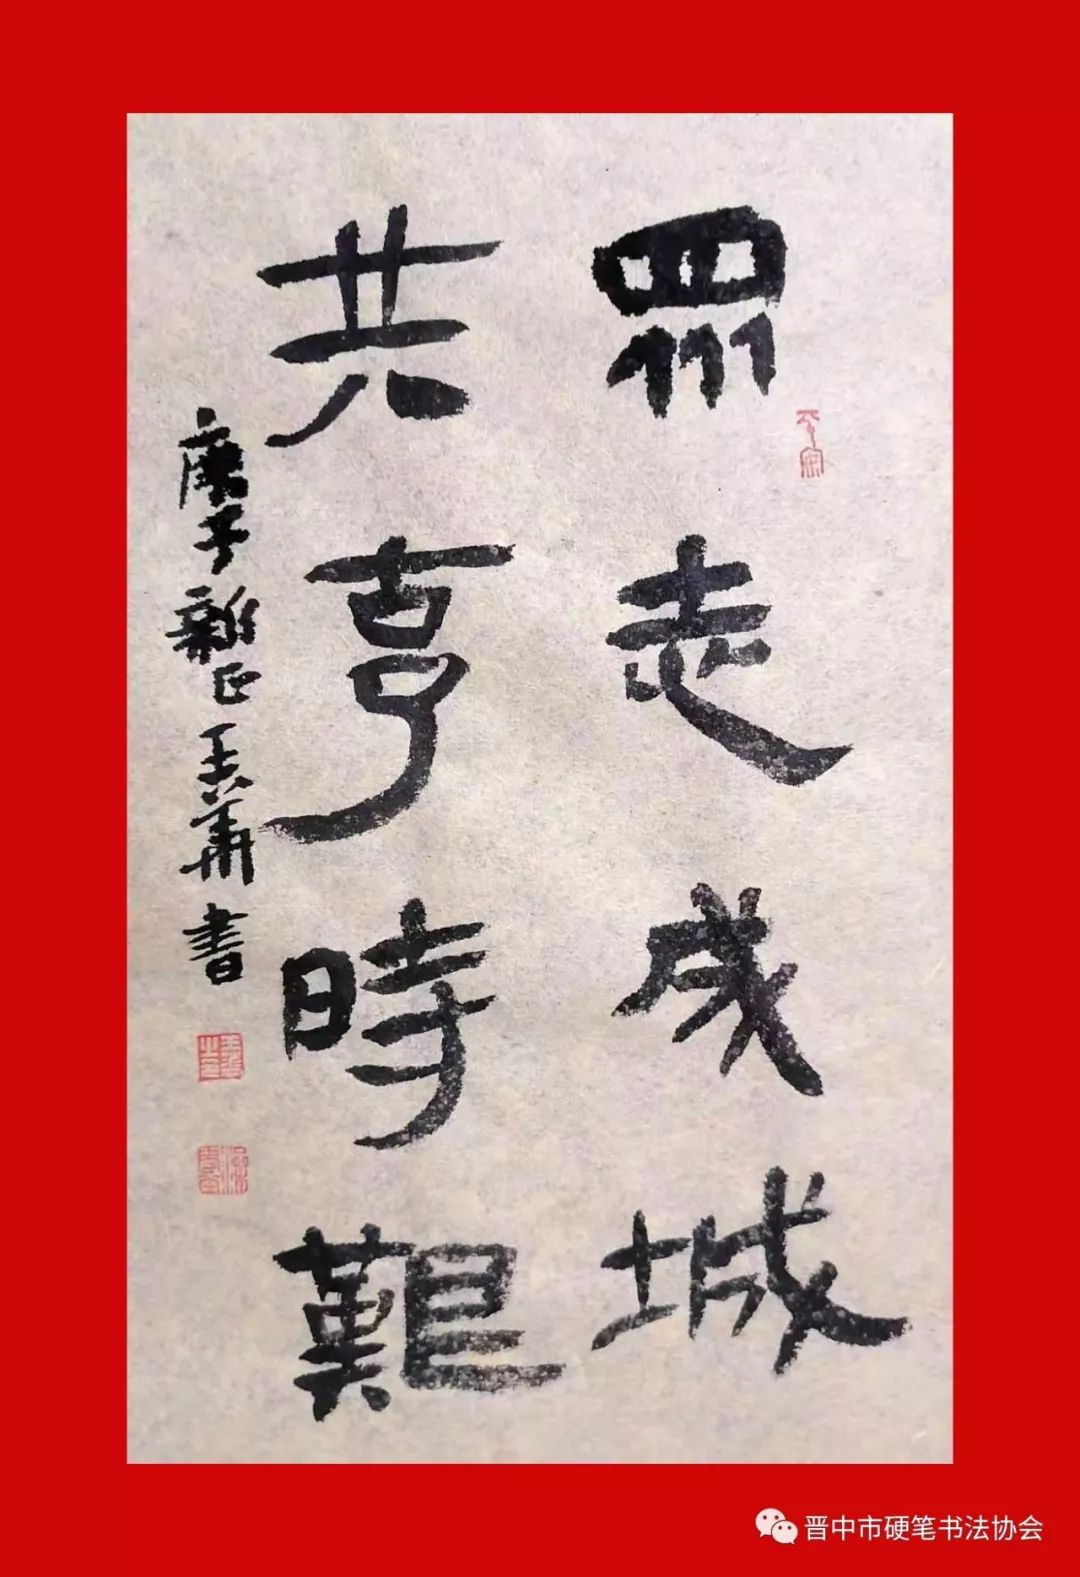 眾志成城
共克時艱
庚子新正 華書
晋中市硬笔书法协会